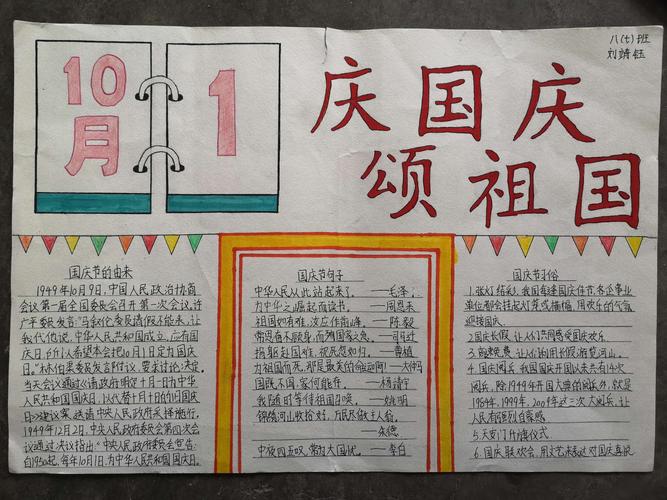 八(七)班
刘靖钰
10月
1
庆国庆
颂祖国
国庆节的由来
1949年10月9日,中国人民政治协商
会议第一届全国委员会召开第一次会议。许
广平委员发言:"马叙伦委员请假不能来,让
我代他说,中华人民共和国成立,应有国
庆日,所以希望本会把10月1日定为国庆
日。"林伯渠委员发言附议,要求讨论、决定。
当天会议通过《请政府明定十月一日为中华
人民共和国国庆日,以代替十月十日的旧国庆
日》建议案,送请中央人民政府采择施行。
1949年12月2日,中央人民政府委员会第四次会
议通过决议指出:"中央人民政府委员会宣告:
自1950起,每年10月1日,为中华人民共和国国庆日。
国庆节句子
中华人民从此站起来了。——毛泽
为中华之崛起而读书。——周恩来
祖国如有难,汝应作前锋。——陈毅
常思奋不顾身,而殉国家之急。——司马迁
捐躯赴国难,视死忽如归。——曹植
为祖国而死,那是最美的命运啊!——大仲马
国既不国,家何能存。——杨靖宇
我随时等待祖国召唤,——姚明
锦绣河山收拾好,万民尽做主人翁。
——朱德
中夜四五叹,常为大国忧。——李白
国庆节习俗
1.张灯结彩,我国每逢国庆佳节,各企事业
单位都会挂起灯笼或横幅,用欢乐的气氛
迎接国庆.
2.国庆长假,让人们共同感受国庆欢乐.
3.高速免费,让人们利用长假,游览河山.
4.国庆阅兵,我国国庆开国以来共有14次
阅兵,除1949年开国大典的阅兵外,就是
1984年,1999年,2009年这三次大阅兵,让
人民有强烈自豪感.
5.天安门升旗仪式.
6.国庆联欢会,用文艺来表达对国庆喜悦